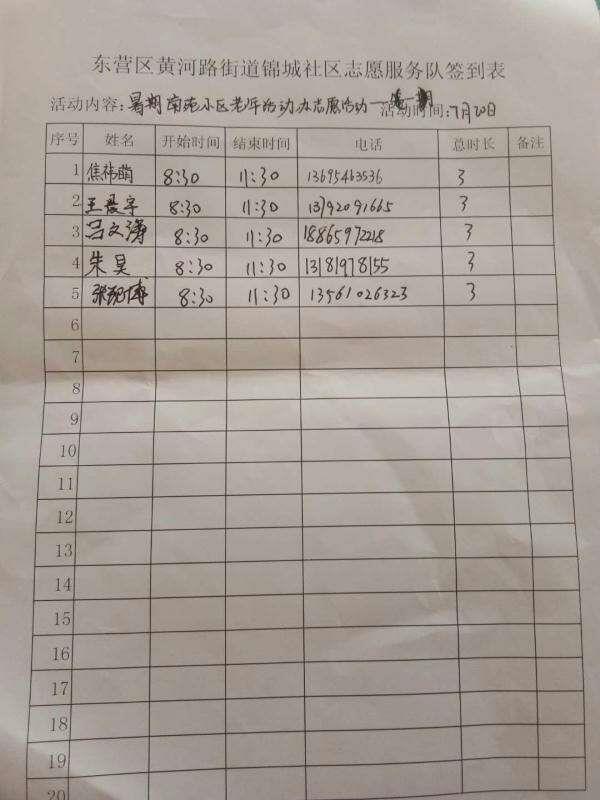 东营区黄河路街道锦城社区志愿服务队签到表
活动内容:暑期南苑小区老年活动办志愿活动 活动时间:7月20日
序号 姓名 开始时间 结束时间 电话 总时长 备注
1 焦祎萌 8:30 11:30 13695463536 3
2 王晨宇 8:30 11:30 13792091665 3
3 吕文涛 8:30 11:30 18865972218 3
4 朱昊 8:30 11:30 13181978155 3
5 张砚博 8:30 11:30 13561026323 3
6
7
8
9
10
11
12
13
14
15
16
17
18
19
20